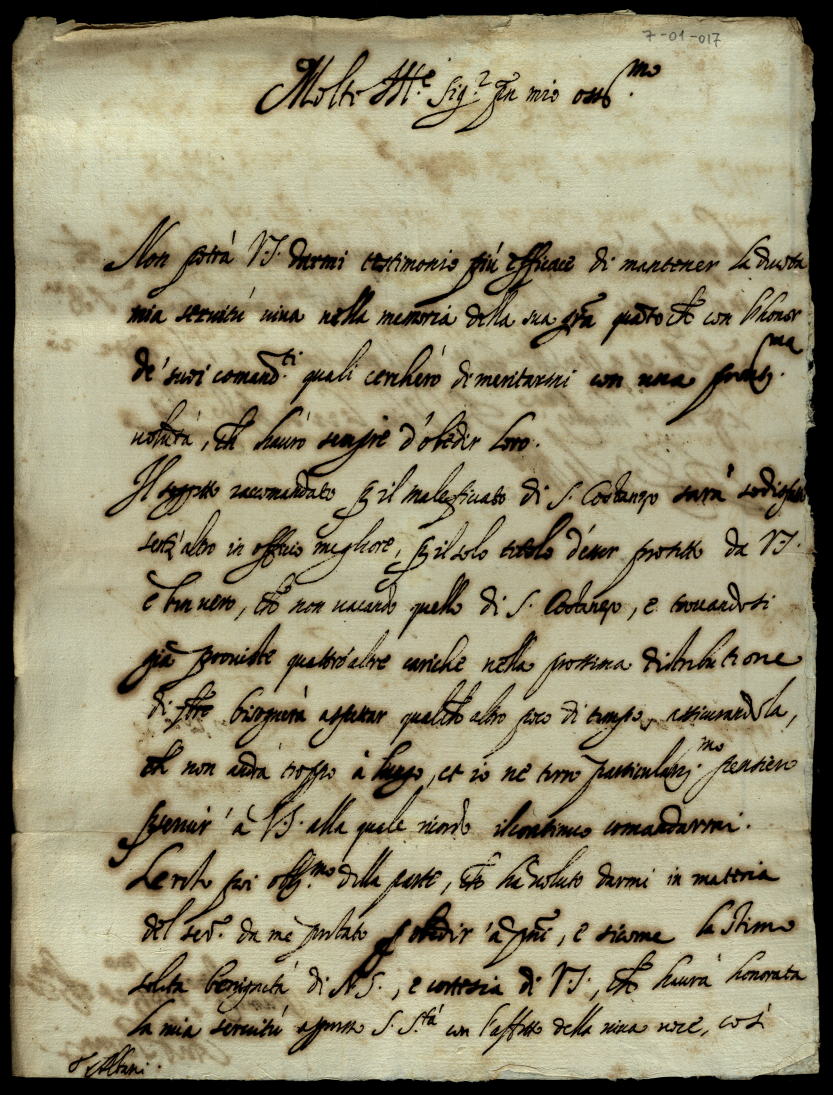 7-01-017
Molto Ill.e Sig.r p̄n mio oss.mo
Non potrà V.S. darmi testimonio più efficace di mantener la devota
mia servitù viva nella memoria della sua gr̄a quāto che con l'honor
de' suoi comand.ti quali cercherò di meritarmi con una
volūtà, che haurò sempre d'obedir loro.
Il soggetto racomandato p il maleficiato di S. Costanzo sarà sodisfatto
senz'altro in officio megliore, p il solo titolo d'esser protetto da V.S.
è ben vero, che non vacando quello di S. Costanzo, e trovandosi
già proviste quattro altre cariche nella prossima distributione
di bisognerà aspettar qualche altro poco di tempo, assicurandola,
che non andrà troppo à lungo, et io ne terrò particolariss.mo pensiero
p servir' à V.S. alla quale ricordo il continuo comandarmi.
Le resto poi obblig.mo della parte, che ha voluto darmi in materia
del da me prestato p obedir' à , e sicome la stimo
solita benignità di N.S., e cortesia di V.S., che haurà honorata
la mia servitù appresso S. S.tà con l'affetto della viva voce, così
Albani.